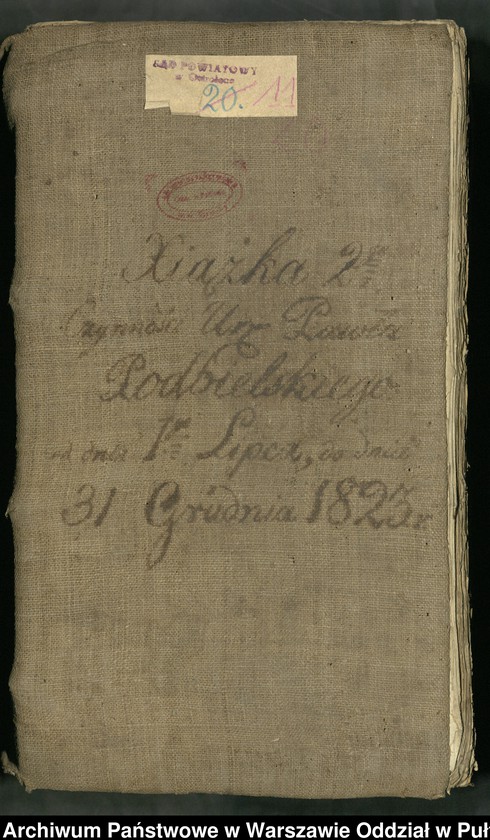 SĄD POWIATOWY
w Ostrołęce
20. 11
Xiążka 2ga
Czynności Urz Pawła
Podbielskiego
od dnia 1go Lipca, do dnia
31 Grudnia 1823 r
Archiwum Państwowe w Warszawie Oddział w Puł